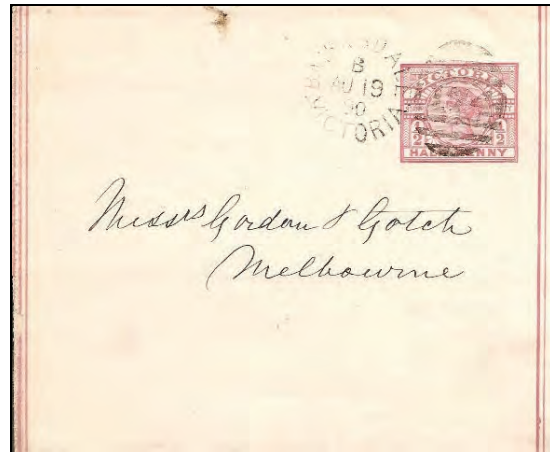 BAIRNSDALE
B
AU 19
90
VICTORIA
VICTORIA
1/2 1/2
HALF PENNY
Messrs Gordon & Gotch
Melbourne